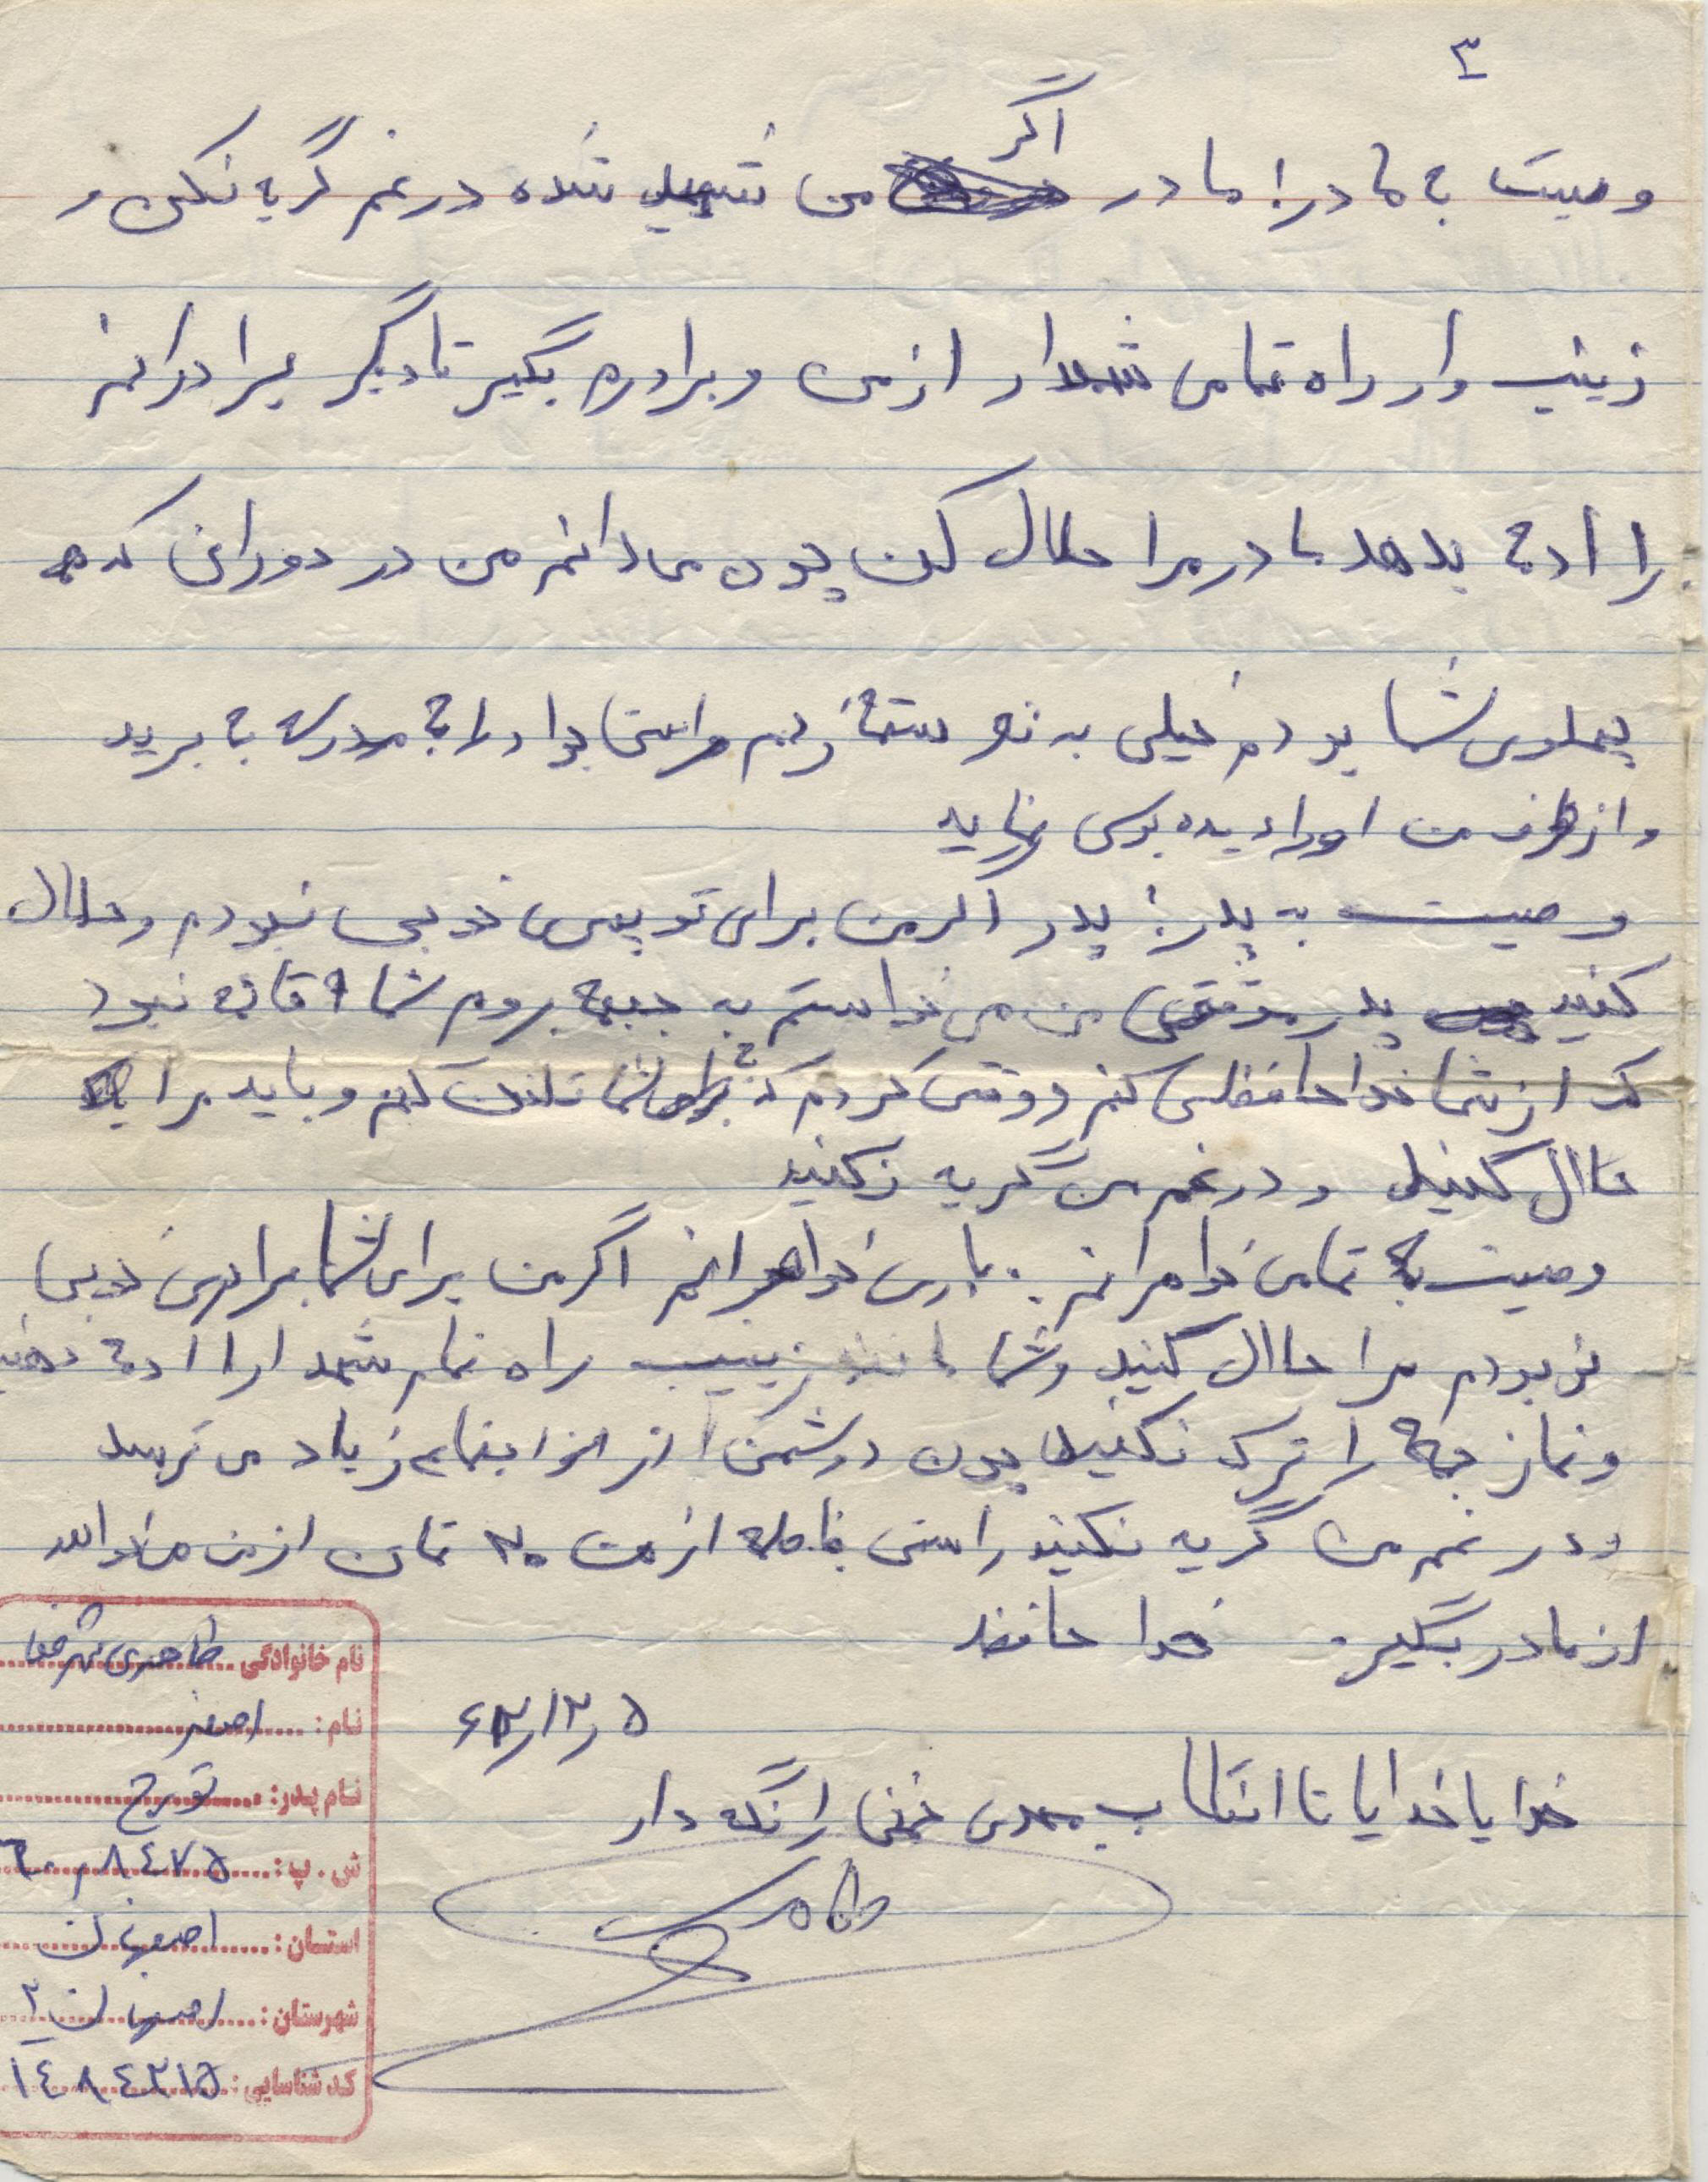 ۳
وصیت به مادر: مادر اگر من شهید شده در غم گریه نکن و
زینب وار راه تمامی شهدا را از من و برادرم بگیر تا دیگر برادرانم
را ادمه بدهد مادر مرا حلال کن چون می دانم من در دورانی که
پهلوی شما بودم خیلی به تو ستم زدم راستی جواد را به مدرسه به برید
و از طرف من او را دیده بوسی نمایید
وصیت به پدر: پدر اگر من برای تو پسری خوبی نبودم و حلال
کنید پدر موقعی من می خواستم به جبهه بروم شما خانه نبود
که از شما خداحافظی کنم و وقتی کردم که به شما تلفن کنم و باید مرا
حلال کنید و در غم من گریه نکنید
وصیت به تمامی خواهرانم: باری خواهرانم اگر من برای شما برادری خوبی
نبودم مرا حلال کنید و شما مانند زینب راه تمام شهدا را ادمه دهید
و نماز جمعه را ترک نکنید چون دشمن از انزا بنماز زیاد می ترسد
و در غم من گریه نکنید راستی فاطمه از من ۲۰ تمان از من می خواهد
از مادر بگیر. خدا حافظ
۶۳/۱۲/۵
خدایا خدایا تا انقلاب مهدی خمینی را نگه دار
طاهری
نام خانوادگی طاهری
نام: اصغر
نام پدر: تورج
ش.پ: ۸٤۷۵
استان: اصفهان
شهرستان: اصفهان ۲
کد شناسایی: ۱٤۸٤۲۱۵